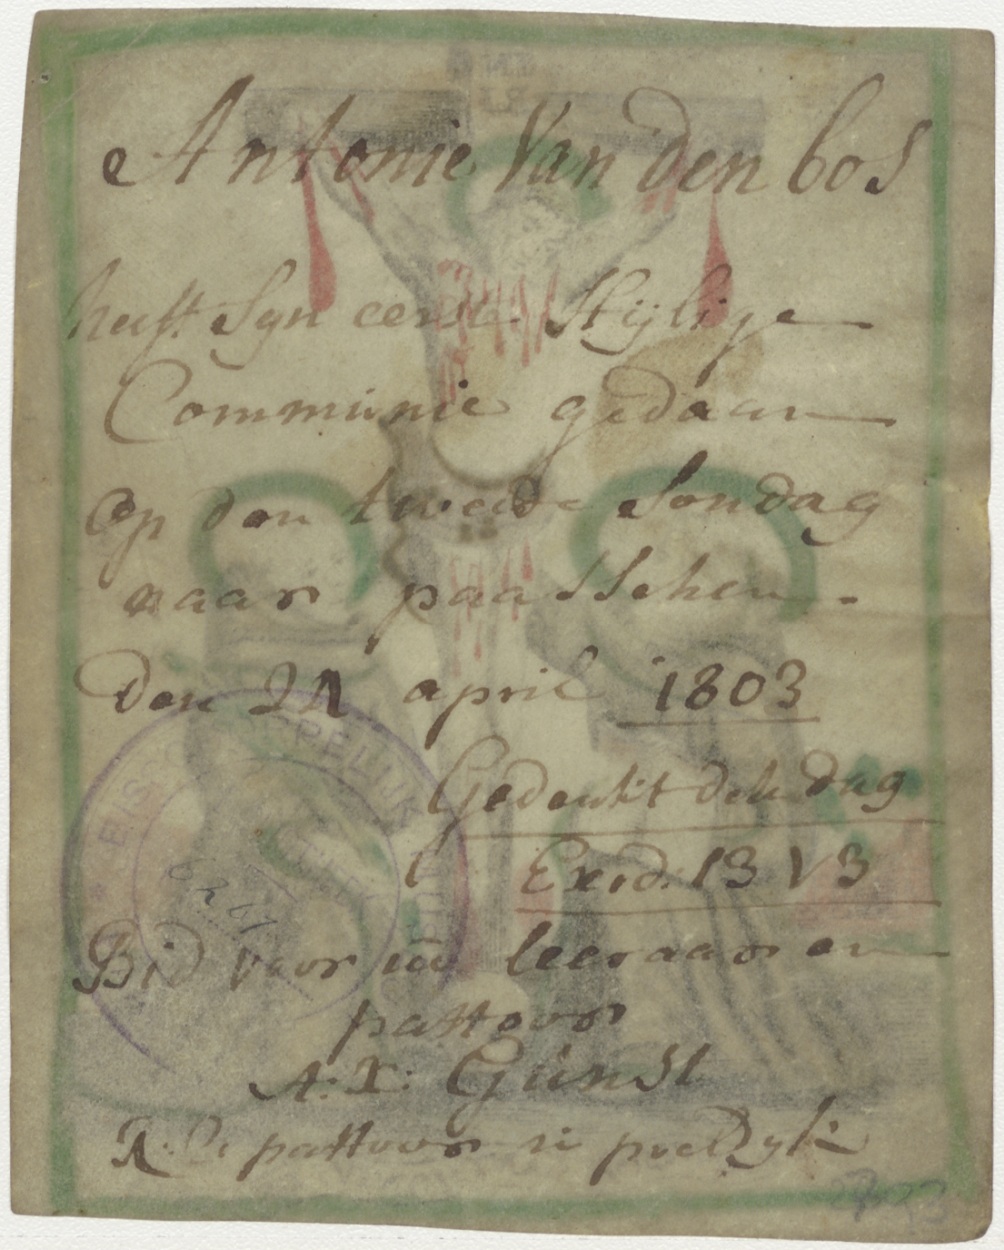 Antonie Van den bos
heeft Syn eerste Hijlige
Communie gedaan
op den tweede Sondag
naar paasschen.
den 24 april 1803
Gedenkt dese dag
Exod: 13 V 3
Bid voor uw leeraar en
pastoor
A: X: Günst
R: C: pastoor in poeldyk